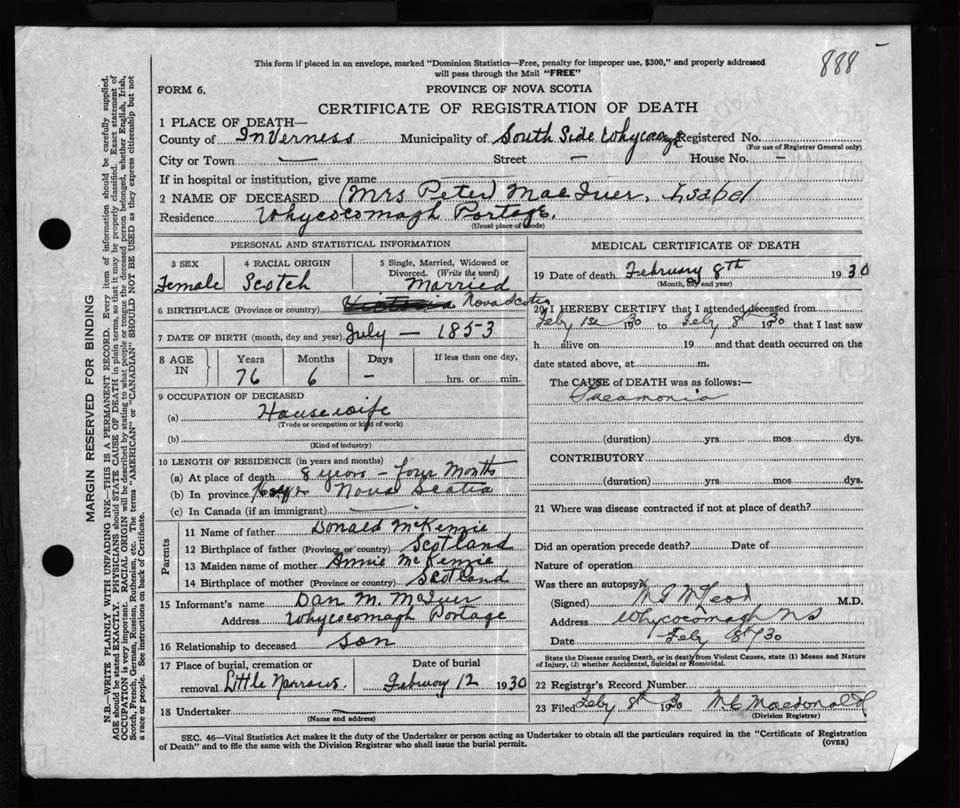 888
This form if placed in an envelope, marked "Dominion Statistics—Free, penalty for improper use, $300," and properly addressed
will pass through the Mail "FREE"
FORM 6. PROVINCE OF NOVA SCOTIA
CERTIFICATE OF REGISTRATION OF DEATH
1 PLACE OF DEATH—
County of InVerness Municipality of South Side Whycocomagh Registered No.
(For use of Registrar General only)
City or Town — Street — House No. —
If in hospital or institution, give name
2 NAME OF DECEASED (Mrs Peter) MacIver, Isabel
Residence Whycocomagh Portage.
(Usual place of abode)
PERSONAL AND STATISTICAL INFORMATION
3 SEX 4 RACIAL ORIGIN 5 Single, Married, Widowed or
Divorced. (Write the word)
Female Scotch Married
6 BIRTHPLACE (Province or country) Victoria Nova Scotia
7 DATE OF BIRTH (month, day and year) July — 1853
8 AGE IN Years Months Days If less than one day,
76 6 – hrs. or min.
9 OCCUPATION OF DECEASED
(a) Housewife
(Trade or occupation or kind of work)
(b)
(Kind of industry)
10 LENGTH OF RESIDENCE (in years and months)
(a) At place of death 8 years – four Months
(b) In province Nova Scotia
(c) In Canada (if an immigrant)
Parents
11 Name of father Donald McKenzie
12 Birthplace of father (Province or country) Scotland
13 Maiden name of mother Annie McKenzie
14 Birthplace of mother (Province or country) Scotland
15 Informant's name Dan M. McIver
Address Whycocomagh Portage
16 Relationship to deceased Son
17 Place of burial, cremation or Date of burial
removal Little Narrows. February 12 1930
18 Undertaker —
(Name and address)
MEDICAL CERTIFICATE OF DEATH
19 Date of death February 8th 1930
(Month, day and year)
20 I HEREBY CERTIFY that I attended deceased from
Feby 1st 1930 to Feby 8th 1930 that I last saw
h alive on 19 and that death occurred on the
date stated above, at m.
The CAUSE of DEATH was as follows:—
Pneamonia
(duration) yrs. mos. dys.
CONTRIBUTORY
(duration) yrs. mos. dys.
21 Where was disease contracted if not at place of death?
Did an operation precede death? Date of
Nature of operation
Was there an autopsy?
(Signed) McLeod M.D.
Address Whycocomagh NS
Date Feby 8th 30
State the Disease causing Death, or in death from Violent Causes, state (1) Means and Nature
of Injury, (2) whether Accidental, Suicidal or Homicidal.
22 Registrar's Record Number
23 Filed Feby 8th 1930 Macdonald
(Division Registrar)
SEC. 46—Vital Statistics Act makes it the duty of the Undertaker or person acting as Undertaker to obtain all the particulars required in the "Certificate of Registration
of Death" and to file the same with the Division Registrar who shall issue the burial permit. (OVER)
MARGIN RESERVED FOR BINDING
N.B.—WRITE PLAINLY WITH UNFADING INK—THIS IS A PERMANENT RECORD. Every item of information should be carefully supplied.
AGE should be stated EXACTLY. PHYSICIANS should STATE CAUSE OF DEATH in plain terms, so that it may be properly classified. Exact statement of
OCCUPATION is very important. RACIAL ORIGIN will be described by stating to what people or tongue the deceased person belonged, whether English, Irish,
Scotch, French, German, Russian, Ruthenian, etc. The terms "AMERICAN" or "CANADIAN" SHOULD NOT BE USED as they express citizenship but not
a race or people. See instructions on back of Certificate.